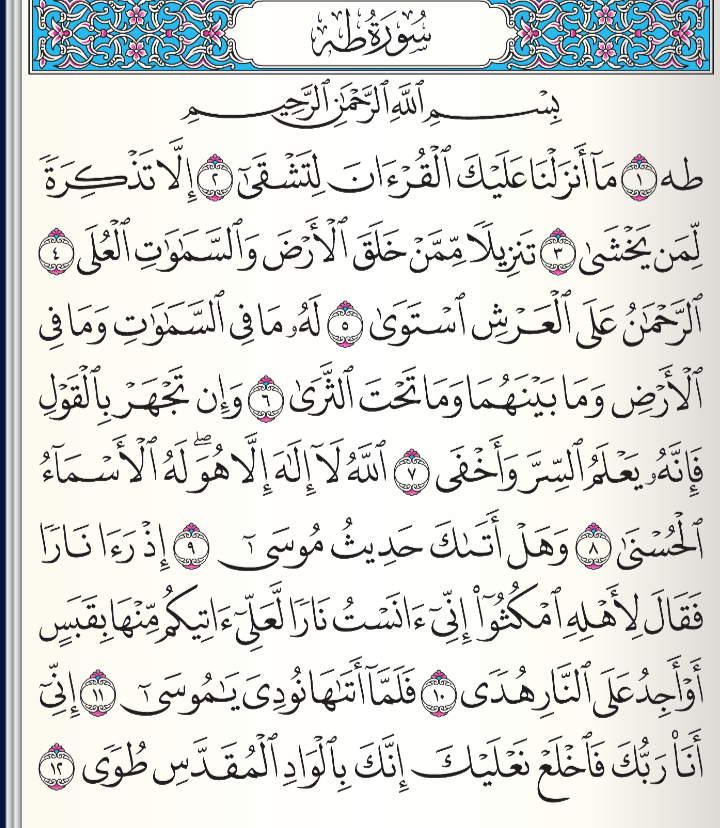 سُورَةُ طه
بِسْمِ ٱللَّهِ ٱلرَّحْمَٰنِ ٱلرَّحِيمِ
طه ١ مَآ أَنزَلْنَا عَلَيْكَ ٱلْقُرْءَانَ لِتَشْقَىٰٓ ٢ إِلَّا تَذْكِرَةً
لِّمَن يَخْشَىٰ ٣ تَنزِيلًا مِّمَّنْ خَلَقَ ٱلْأَرْضَ وَٱلسَّمَٰوَٰتِ ٱلْعُلَى ٤
ٱلرَّحْمَٰنُ عَلَى ٱلْعَرْشِ ٱسْتَوَىٰ ٥ لَهُۥ مَا فِى ٱلسَّمَٰوَٰتِ وَمَا فِى
ٱلْأَرْضِ وَمَا بَيْنَهُمَا وَمَا تَحْتَ ٱلثَّرَىٰ ٦ وَإِن تَجْهَرْ بِٱلْقَوْلِ
فَإِنَّهُۥ يَعْلَمُ ٱلسِّرَّ وَأَخْفَى ٧ ٱللَّهُ لَآ إِلَٰهَ إِلَّا هُوَ ۖ لَهُ ٱلْأَسْمَآءُ
ٱلْحُسْنَىٰ ٨ وَهَلْ أَتَىٰكَ حَدِيثُ مُوسَىٰٓ ٩ إِذْ رَءَا نَارًا
فَقَالَ لِأَهْلِهِ ٱمْكُثُوٓا۟ إِنِّىٓ ءَانَسْتُ نَارًا لَّعَلِّىٓ ءَاتِيكُم مِّنْهَا بِقَبَسٍ
أَوْ أَجِدُ عَلَى ٱلنَّارِ هُدًى ١٠ فَلَمَّآ أَتَىٰهَا نُودِىَ يَٰمُوسَىٰٓ ١١ إِنِّىٓ
أَنَا۠ رَبُّكَ فَٱخْلَعْ نَعْلَيْكَ إِنَّكَ بِٱلْوَادِ ٱلْمُقَدَّسِ طُوًى ١٢